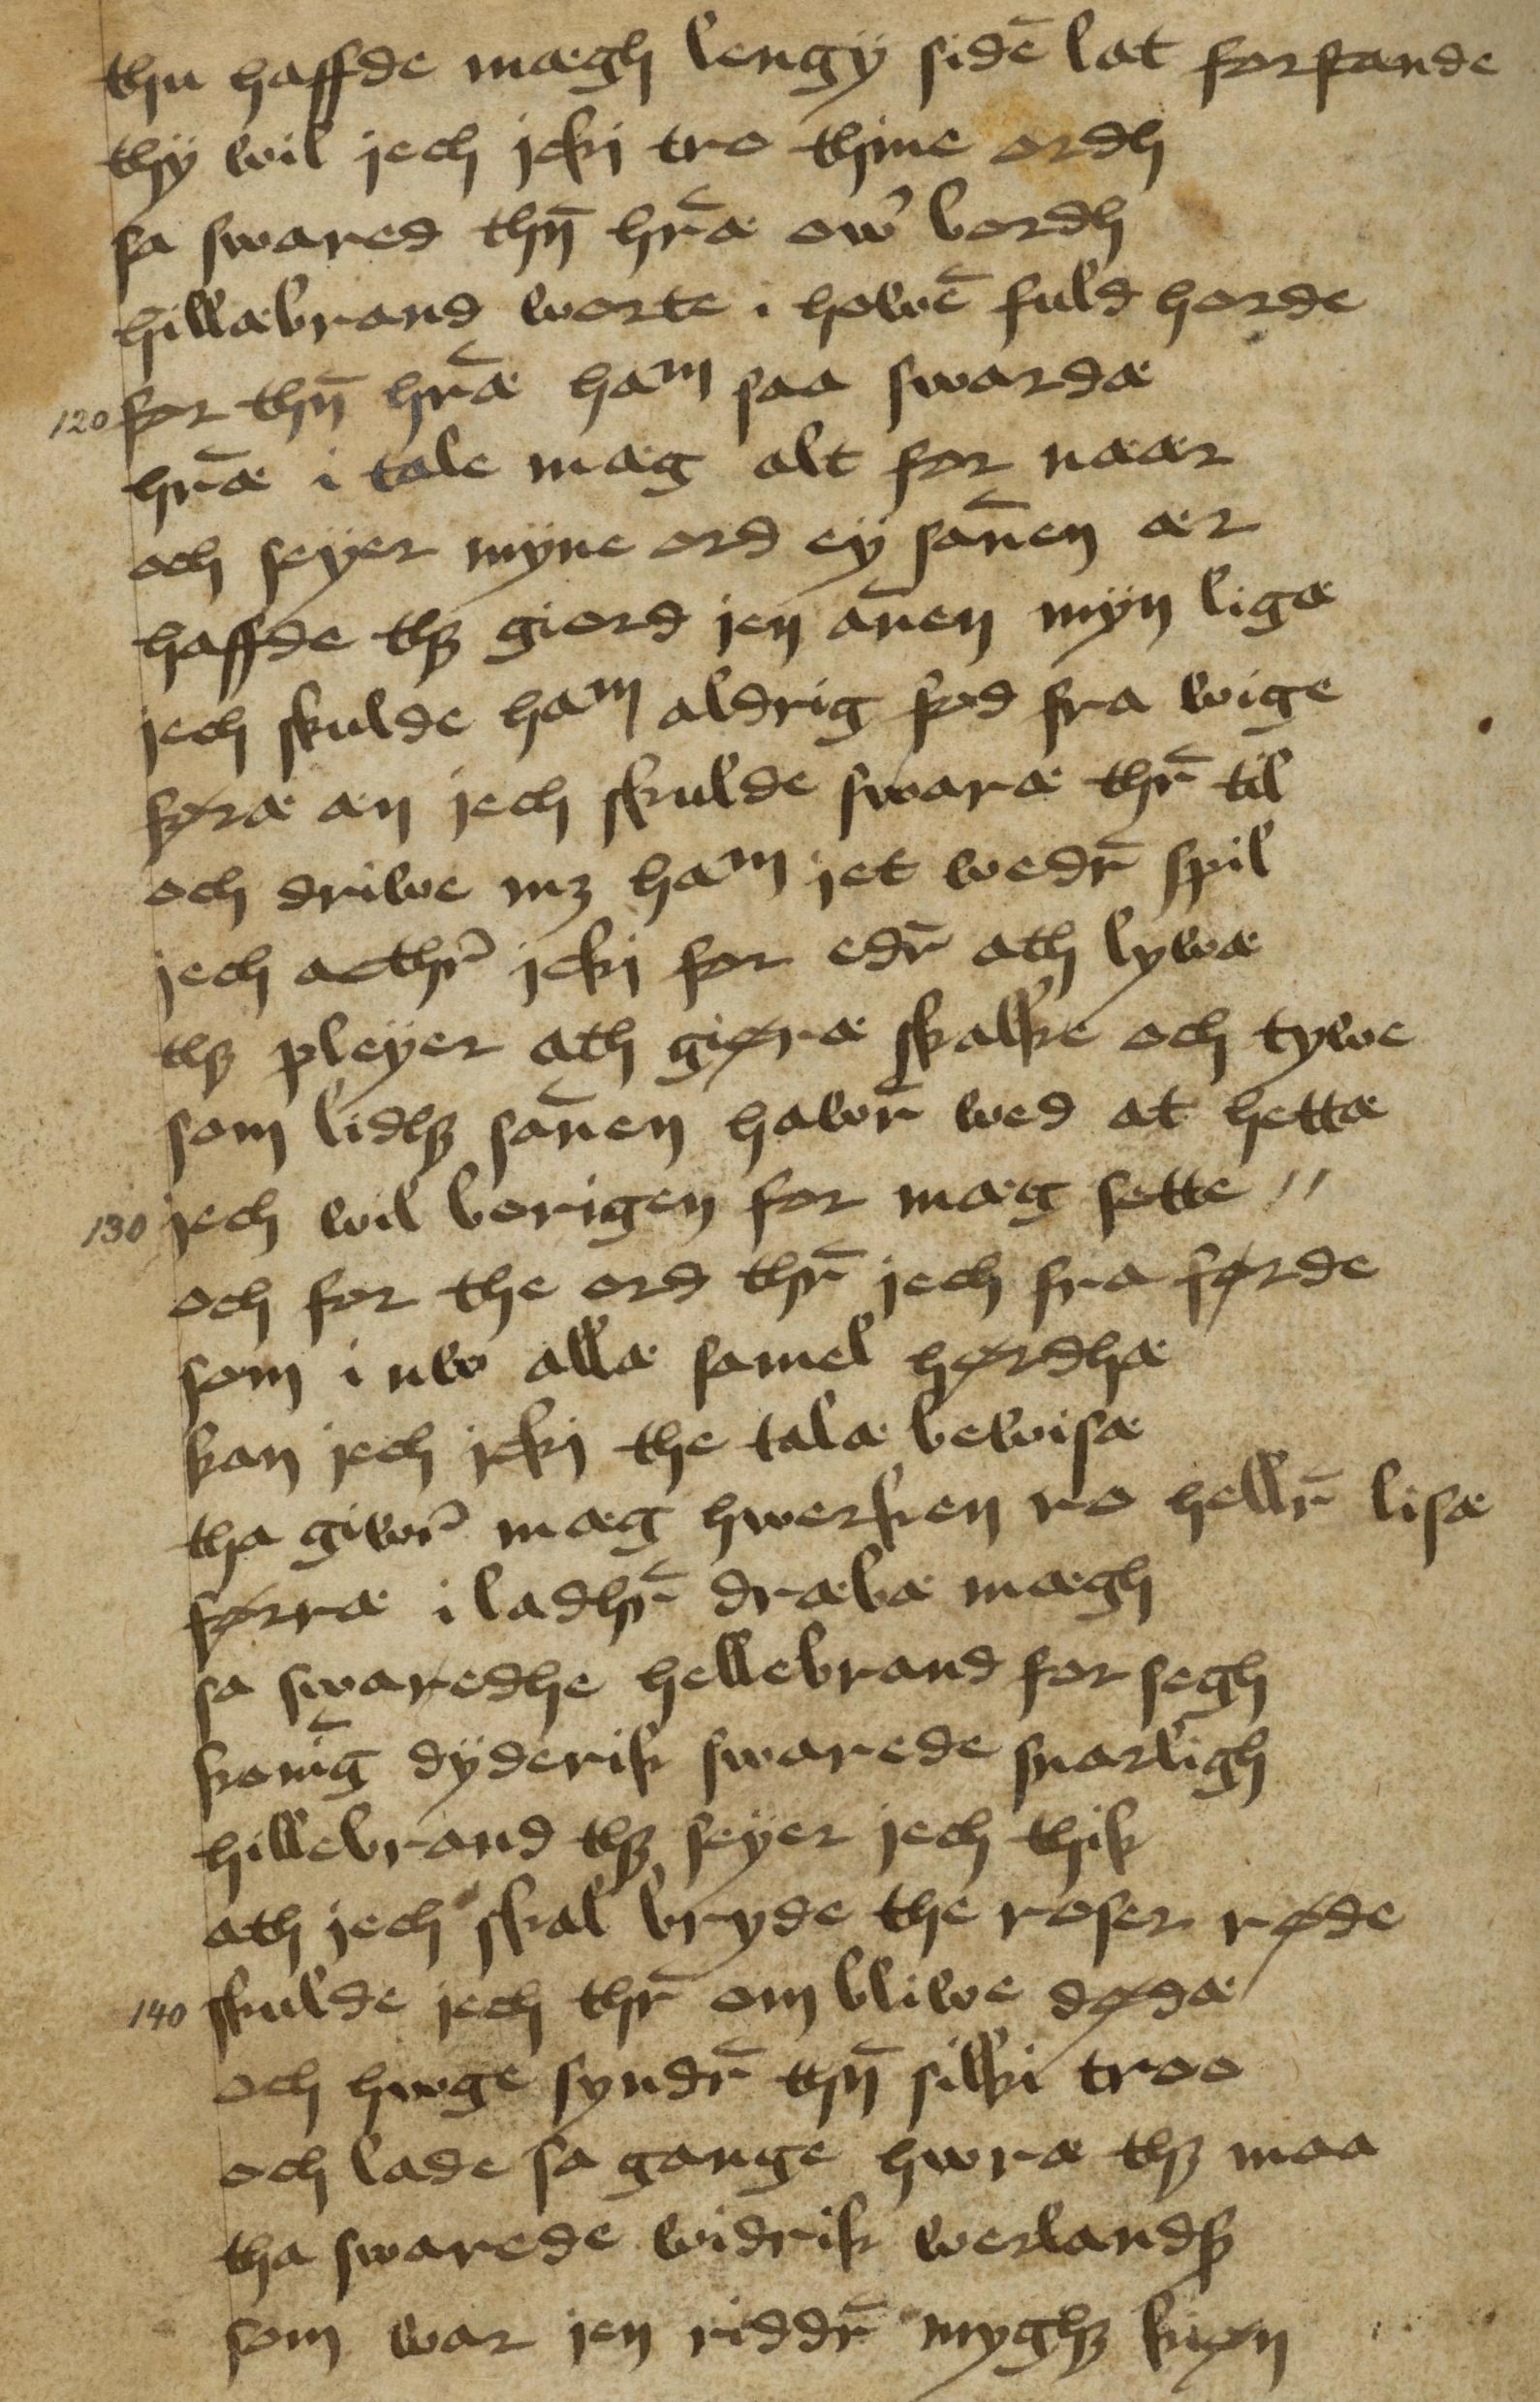 thu haffde mægh lengÿ sidē lat forstande
thÿ wil jech jcki tro thine ordh
sa swared thn̄ hr̄æ ow' bordh
hillæbrand worte i howē fuld horde
120 for thn̄ hr̄æ haᵐ saa swardæ
hr̄æ i tale mæg alt for nær
och seÿer mÿne ord eÿ san̄en ær
haffde thꝫ giord jen an̄en mÿn ligæ
jech skulde haᵐ aldrig fod fra wige
føræ æn jech skulde swaræ thr̄ til
och driwe mꝫ haᵐ jet wedr̄ spil
jech acthr̄ jcki for edr̄ ath lywæ
thꝫ pleÿer ath giøræ skalke och tywe
som lidhꝫ san̄en hawr̄ wed at hettæ
130 jech wil borigen for mæg sette //
och for the ord thr̄ jech fraførde
som i nw allæ samel hørdhæ
kan jech jcki the talæ bewisæ
tha giwr̄ mæg hwerken ro hellr̄ lisæ
førræ i ladhr̄ dræbæ mægh
sa swaredhe hellebrand for segh
konīg dÿderik swarede snarligh
hillebrand thꝫ seÿer jech thik
ath jech skal bryde the roser røde
140 skulde jech thr̄ om bliwe dødæ
och hwge syndr̄ thn̄ silki troo
och lade sa gange hwræ thꝫ maa
tha swarede widrik werlandsꝫ
som war jen riddr̄ myghꝫ kiøn